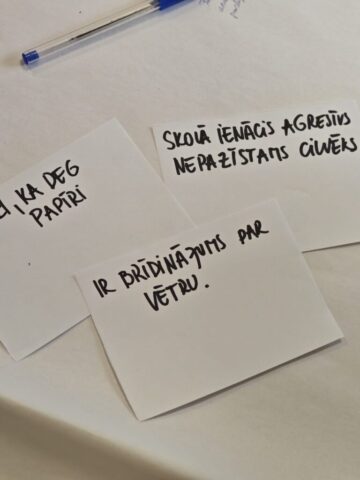 SKOLĀ IENĀCIS AGRESĪVS
NEPAZĪSTAMS CILVĒKS
, KA DEG
PAPĪRI
IR BRĪDINĀJUMS PAR
VĒTRU.